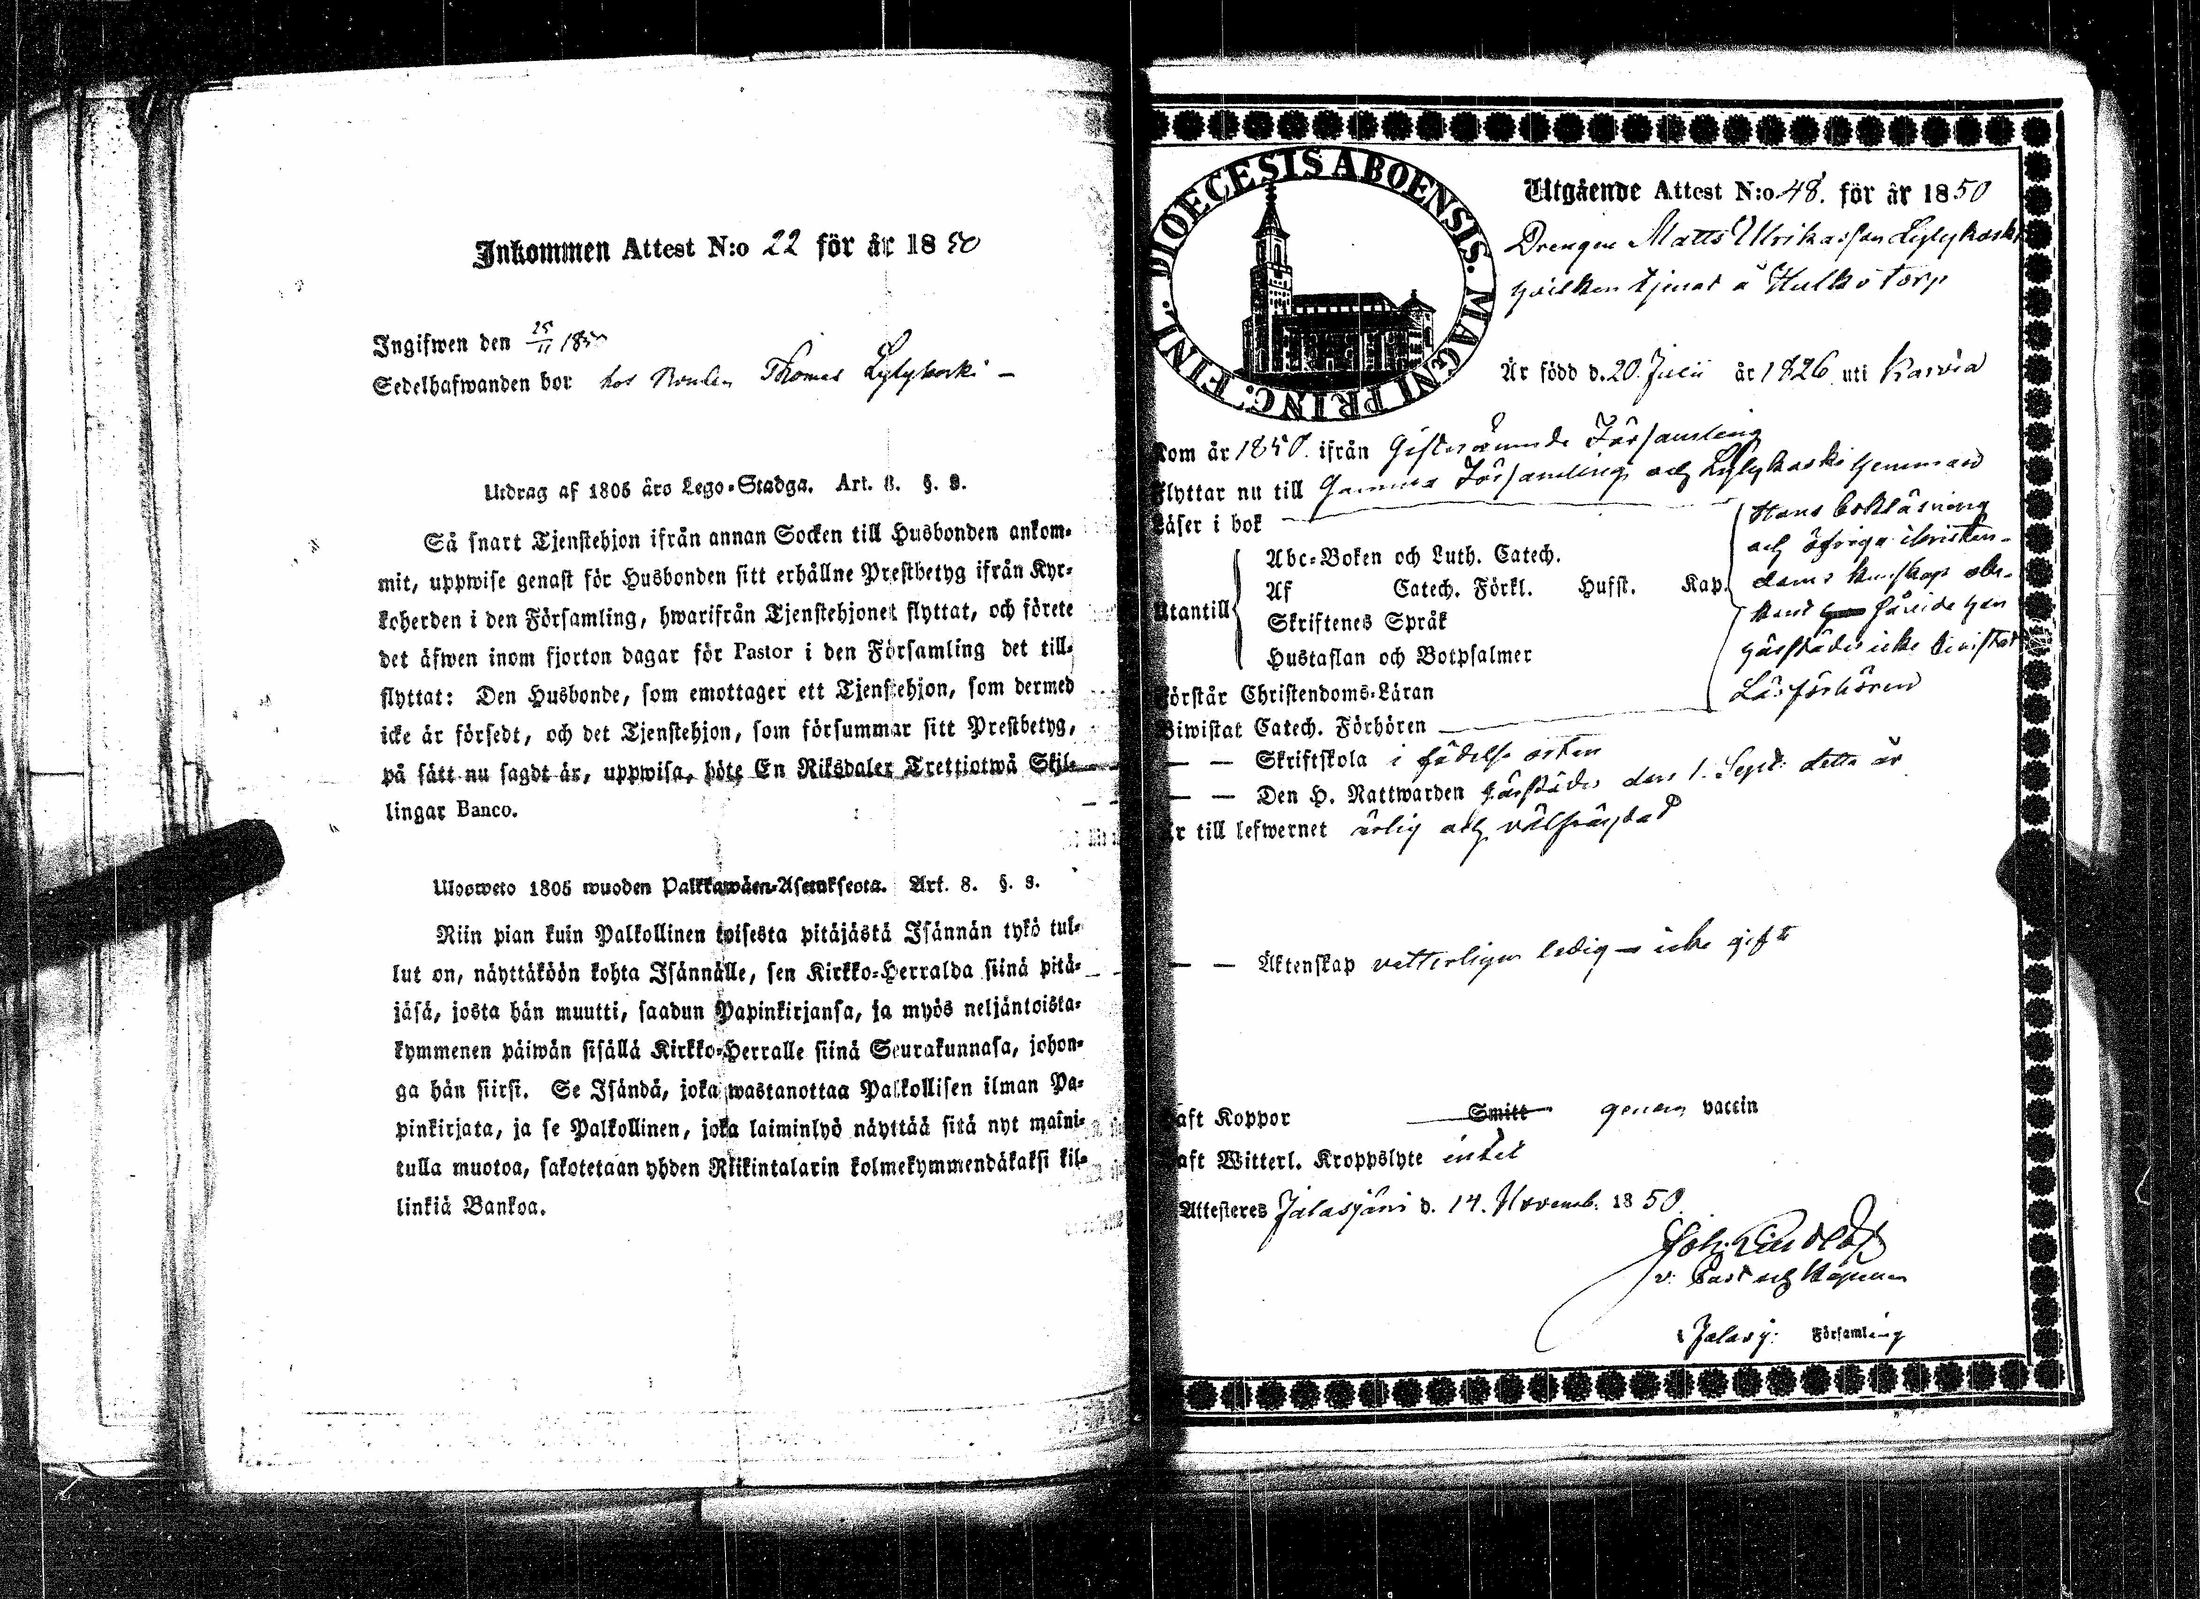 Inkommen Attest N:o 22 för år 1850
Ingifwen den 25/11 1850
Sedelhafwanden bor hos Bonden Thomas Lylykoski –
Utdrag af 1805 års Lego-Stadga. Art. 8. §. 9.
Så snart Tjenstehjon ifrån annan Socken till Husbonden ankom-
mit, uppwise genast för Husbonden sitt erhållne Prestbetyg ifrån Kyr-
koherden i den Församling, hwarifrån Tjenstehjonet flyttat, och förete
det äfwen inom fjorton dagar för Pastor i den Församling det till-
flyttat: Den Husbonde, som emottager ett Tjenstehjon, som dermed
icke är försedt, och det Tjenstehjon, som försummar sitt Prestbetyg,
på sätt nu sagdt är, uppwisa, böte En Riksdaler Trettiotwå Skil-
lingar Banco.
Ulosweto 1805 wuoden Palkkawäen-Asetuksesta. Art. 8. §. 9.
Niin pian kuin Palkollinen toisesta pitäjästä Isännän tykö tul-
lut on, näyttäköön kohta Isännälle, sen Kirkko-Herralda siinä pitä-
jäsä, josta hän muutti, saadun Papinkirjansa, ja myös neljäntoista-
kymmenen päiwän sisällä Kirkko-Herralle siinä Seurakunnasa, johon-
ga hän siirsi. Se Isändä, joka wastanottaa Palkollisen ilman Pa-
pinkirjata, ja se Palkollinen, joka laiminlyö näyttää sitä nyt maini-
tulla muotoa, sakotetaan yhden Riikintalarin kolmekymmendäkaksi kil-
linkiä Bankoa.
DIOECESIS ABOENSIS. MAGNI PRINC. FINL.
Utgående Attest N:o 48. för år 1850
Drengen Matts Ulrikasson Lylykoski
hvilken tjenat å Hulko torp
Är född d. 20. Julii år 1826 uti Karvia
Kom år 1850. ifrån Församling
Flyttar nu till Församling och Lylykoski hemman
Läser i bok
Utantill
Abc-Boken och Luth. Catech.
Af Catech. Förkl. Husst. Kap.
Skriftenes Språk
Hustaflan och Botpsalmer
Hans bokläsning
och öfriga christen-
doms kunskap obe-
kant han
härstädes icke bivistat
Läsförhören
Förstår Christendoms-Läran
Biwistat Catech. Förhören
— — Skriftskola i födelse orten
— — Den H. Nattwarden härstädes den 1. Sept. detta år
Är till lefwernet ärlig och välfrägdad
— — Äktenskap vetterligen ledig – icke gift
Haft Koppor Smitt genom vaccin
Haft Witterl. Kroppslyte intet
Attesteres Jalasjärvi d. 14. Novemb. 1850.
Joh.
v. Past och
i Jalasj: Församling